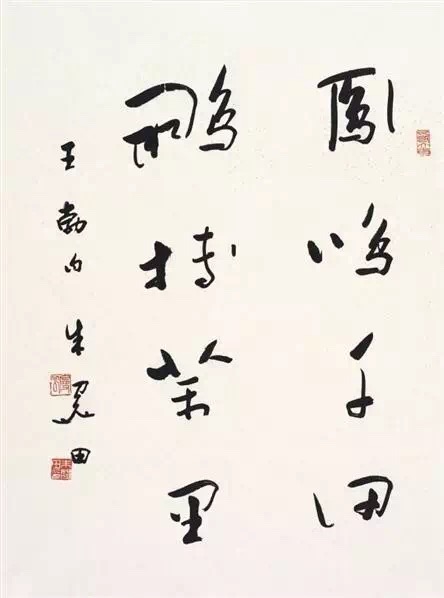 鳳鳴千仞
鵬摶萬里
王勃句 朱關田